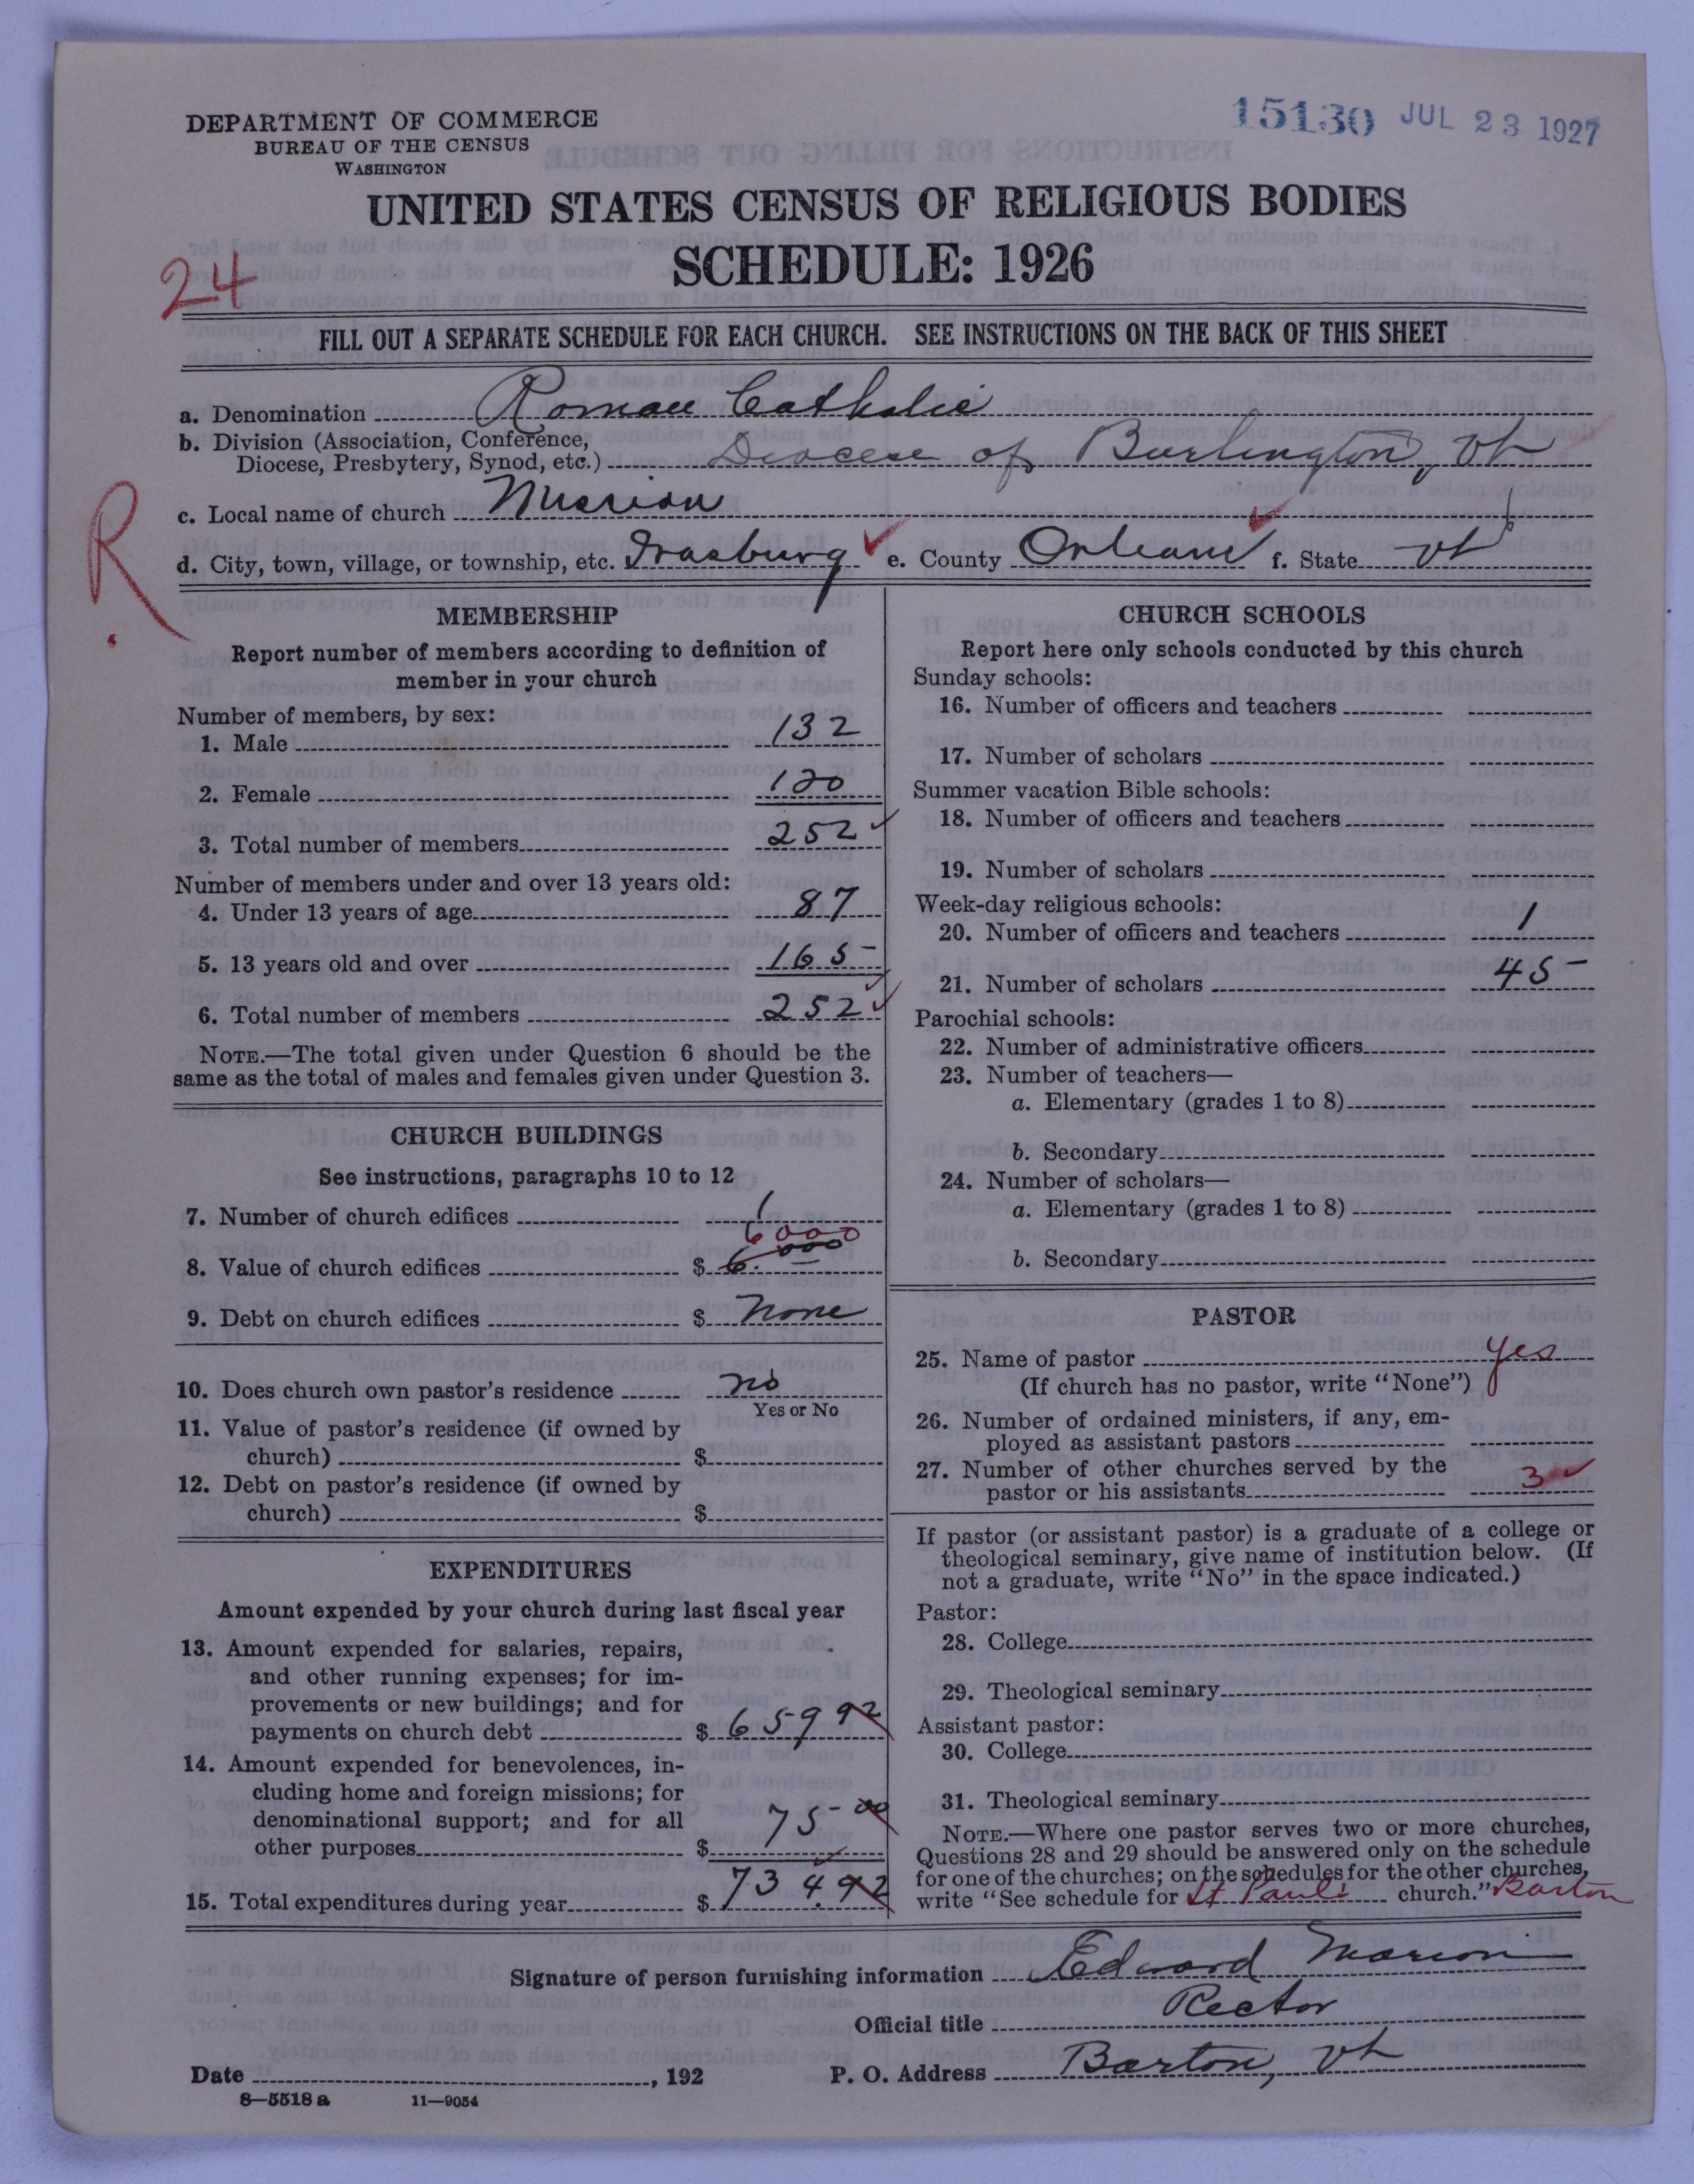 DEPARTMENT OF COMMERCE
BUREAU OF THE CENSUS
WASHINGTON
15130 JUL 23 1927
UNITED STATES CENSUS OF RELIGIOUS BODIES
SCHEDULE: 1926
24
FILL OUT A SEPARATE SCHEDULE FOR EACH CHURCH. SEE INSTRUCTIONS ON THE BACK OF THIS SHEET
a. Denomination Roman Catholic
b. Division (Association, Conference,
Diocese, Presbytery, Synod, etc.) Diocese of Burlington, Vt
R
c. Local name of church Mission
d. City, town, village, or township, etc. Irasburg e. County Orleans f. State Vt
MEMBERSHIP
Report number of members according to definition of
member in your church
Number of members, by sex:
1. Male 132
2. Female 120
3. Total number of members 252
Number of members under and over 13 years old:
4. Under 13 years of age 87
5. 13 years old and over 165
6. Total number of members 252
NOTE.—The total given under Question 6 should be the
same as the total of males and females given under Question 3.
CHURCH BUILDINGS
See instructions, paragraphs 10 to 12
7. Number of church edifices 1
6000
8. Value of church edifices $ 6.000
9. Debt on church edifices $ None
10. Does church own pastor's residence no
Yes or No
11. Value of pastor's residence (if owned by
church) $
12. Debt on pastor's residence (if owned by
church) $
EXPENDITURES
Amount expended by your church during last fiscal year
13. Amount expended for salaries, repairs,
and other running expenses; for im-
provements or new buildings; and for
payments on church debt $ 659 92
14. Amount expended for benevolences, in-
cluding home and foreign missions; for
denominational support; and for all
other purposes $ 75 00
15. Total expenditures during year $ 734.92
CHURCH SCHOOLS
Report here only schools conducted by this church
Sunday schools:
16. Number of officers and teachers
17. Number of scholars
Summer vacation Bible schools:
18. Number of officers and teachers
19. Number of scholars
Week-day religious schools:
20. Number of officers and teachers 1
21. Number of scholars 45
Parochial schools:
22. Number of administrative officers
23. Number of teachers—
a. Elementary (grades 1 to 8)
b. Secondary
24. Number of scholars—
a. Elementary (grades 1 to 8)
b. Secondary
PASTOR
25. Name of pastor yes
(If church has no pastor, write "None")
26. Number of ordained ministers, if any, em-
ployed as assistant pastors
27. Number of other churches served by the
pastor or his assistants 3
If pastor (or assistant pastor) is a graduate of a college or
theological seminary, give name of institution below. (If
not a graduate, write "No" in the space indicated.)
Pastor:
28. College
29. Theological seminary
Assistant pastor:
30. College
31. Theological seminary
NOTE.—Where one pastor serves two or more churches,
Questions 28 and 29 should be answered only on the schedule
for one of the churches; on the schedules for the other churches,
write "See schedule for St Pauls church." Barton
Signature of person furnishing information Edward Marion
Official title Rector
Date , 192 P. O. Address Barton, Vt
8—5518 a 11—9054